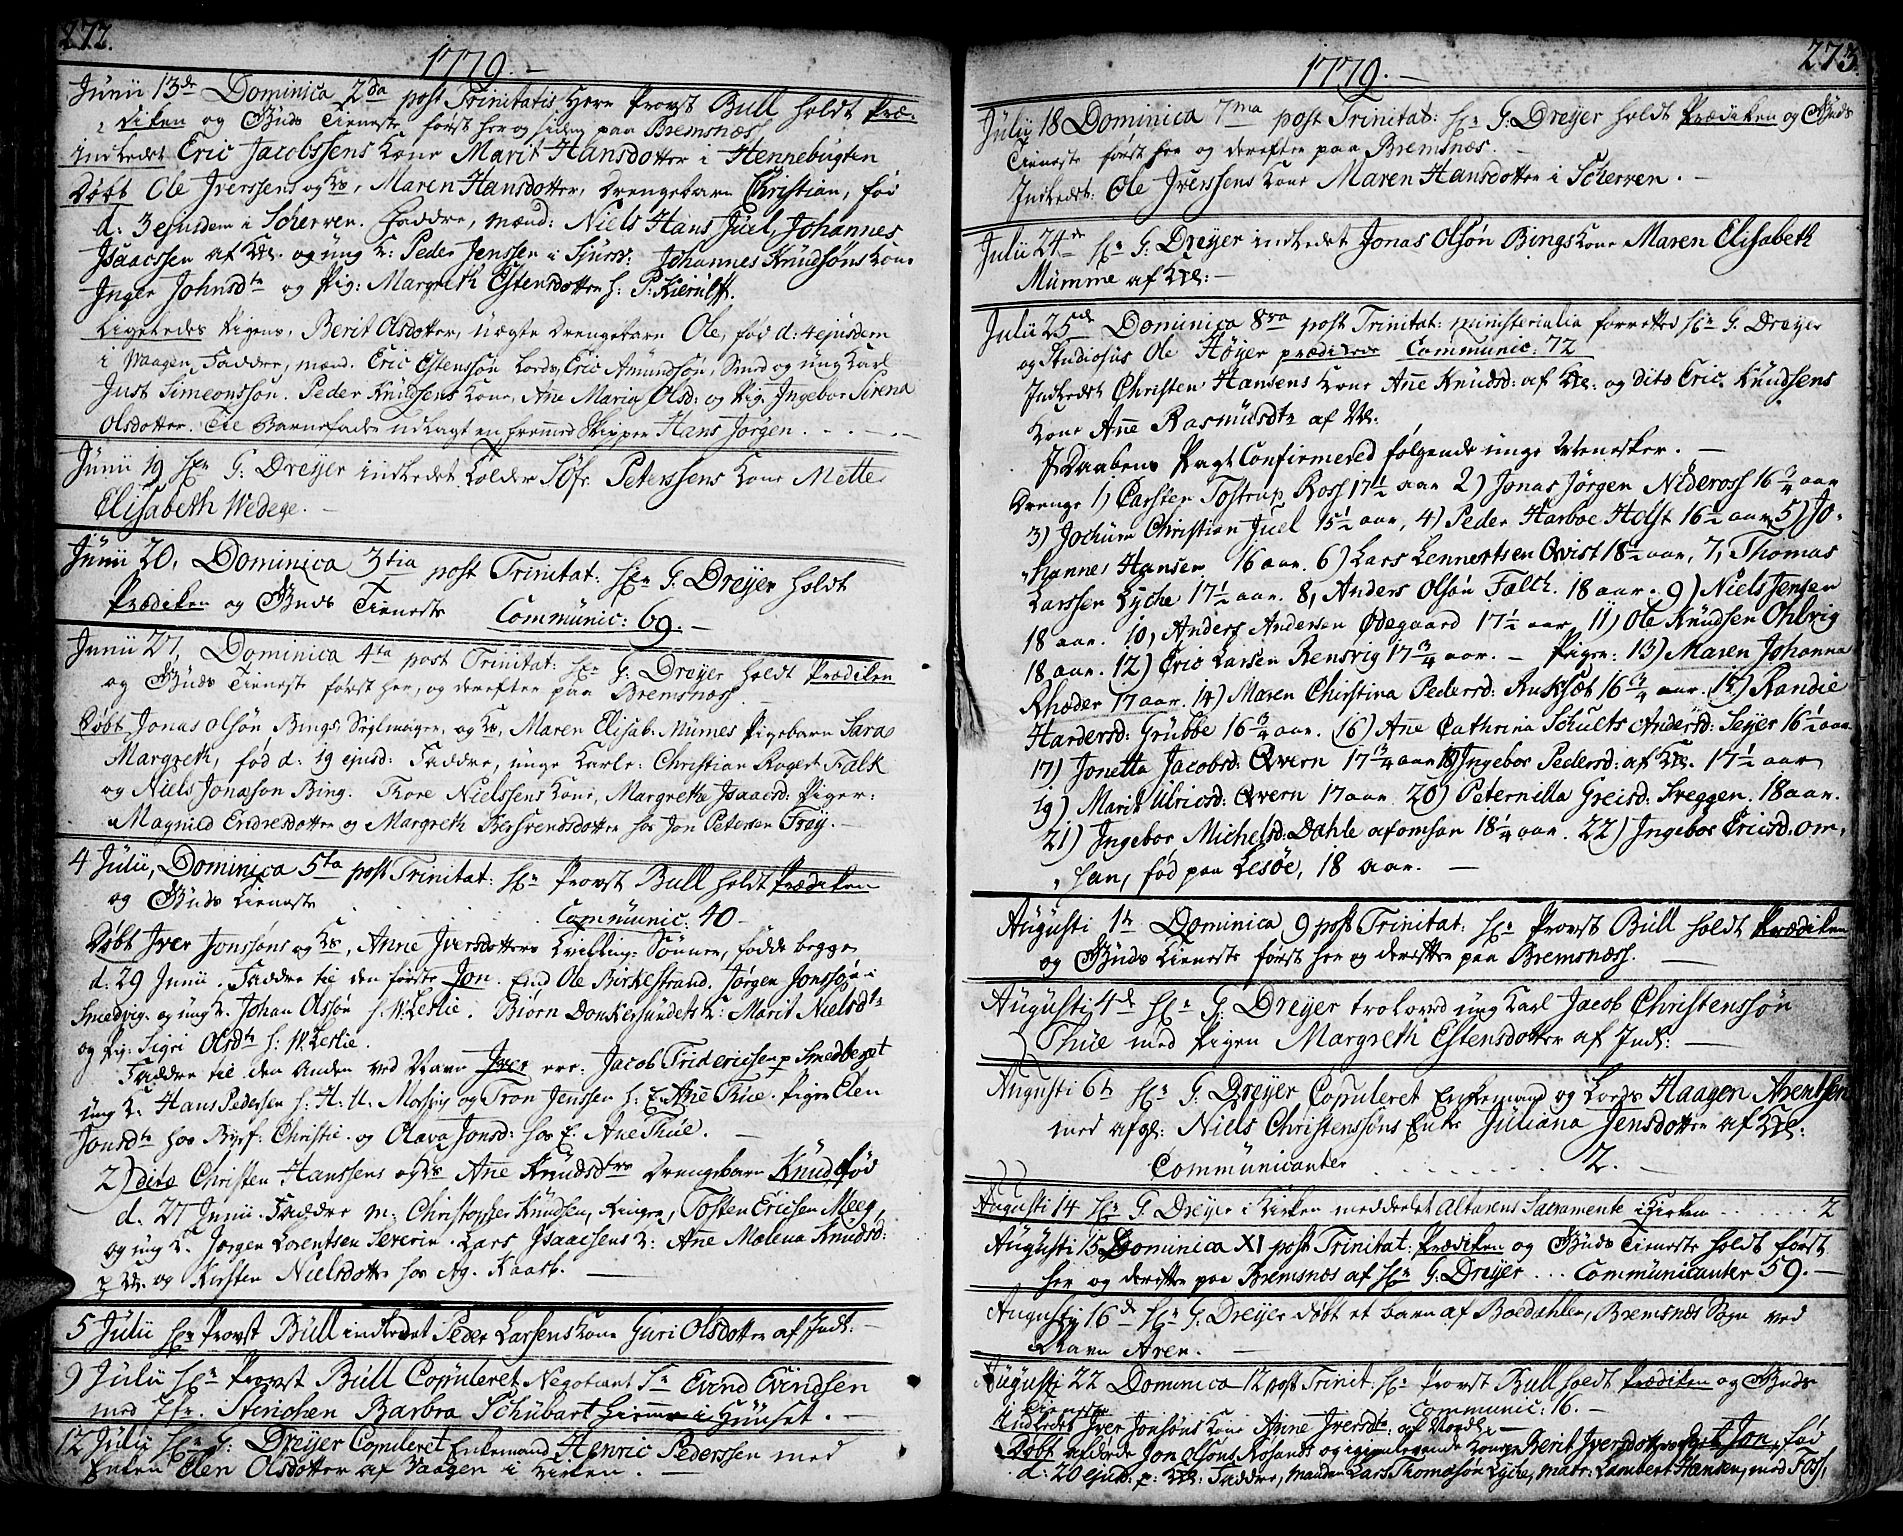 272.
1779. –
Junii 13de Dominica 2da post Trinitatis Herr Provst Bull holdt Præ-
diken og Guds Tieneste først her og siden paa Bremsnæs
Indledet Eric Jacobssens Kone Marit Hansdotter i Hennebugten
Døbt Ole Iverssens og Ks, Maren Hansdotter, Drengebarn Christian, fød
d: 3 ejusdem i Scherven. Faddre, mænd: Niels Hans Juel, Johannes
Isaacssen af Kl. og ung K: Peder Jenssen i Sjurv: Johannes Knudsøns Kone
Inger Johnsdtr og Pig: Margreth Estensdotter h: P: Kierulff.
Ligeledes Pigens, Berit Olsdotter, uægte Drengebarn Ole, fød d: 4 ejusdem
i Vaagen, Faddre, mænd. Eric Estensøn Lords, Eric Amundsøn, Smed og ung Karl
Just Simeonssøn. Peder Knudsens Kone, Ane Maria Olsd: og Pig. Ingebor Sirena
Olsdotter. Til Barnefader udlagt en fremmed Skipper Hans Jørgen. . . . .
Junii 19 Hr G: Dreyer indledet Tolder Søfr Peterssens Kone Mette
Elisabeth Wedege. –
Junii 20, Dominica 3tia post Trinitat: Hr G: Dreyer holdt
Prædiken og Guds Tieneste Communic: 69. –
Junii 27, Dominica 4ta post Trinitat: Hr G: Dreyer holdt Prædiken
og Guds Tieneste først her, og derefter paa Bremsnæs.
Døbt Jonas Olsøn Bings, Seglmager, og Ks, Maren Elisab: Mumes Pigebarn Sara
Margreth, fød d: 19 ejusd: Faddre, unge Karle: Christian Rogert Falk
og Niels Jonæsøn Bing. Thore Nielssens Kone, Margrethe Isaacsd: Piger:
Magnild Endresdotter og Margreth Bersvendsdotter hos Jon Petersen Frøy. –
4 Julii, Dominica 5ta post Trinitat: Hr Provst Bull holdt Prædiken
og Guds Tieneste . . . Communic: 40 –
Døbt Iver Jonssøns og Ks, Anne Iversdotters Tvilling-Sønner, fødde begge
d: 29 Junii. Faddre til den første Jon. Ole Birkestrand. Jørgen Jonssøn i
Smedvig. og ung K. Johan Olssøn h: W: Leslie. Biørn Donkersundets K: Marit Nielsdtr
og Pig: Sigri Olsdtr h: W: Leslie.
Faddre til den Anden ved Navn Iver ere: Jacob Fridericsen p Smedberget
ung K. Hans Pedersen h: H: U: Mossvig og Tron Jenssen h: E. Ane Thue. Piger Elen
Jonsdtr hos Byef: Christie. og Olava Jonsd: hos E. Ane Thue. –
2) dito Christen Hanssens og Ks Ane Knudsdtrs Drengebarn Knud, fød
d. 27 Junii. Faddre m: Christopher Knudsen, Ringer, Tosten Ericsen Meeg,
og ung K. Jørgen Lorentsen Severin. Lars Isaacsens K: Ane Malena Knudsd:
p Kl. og Kirsten Nielsdotter hos Ag. Kaasb. –
5 Julii Hr Provst Bull indledet Peder Larsens Kone Guri Olsdotter af Indl. –
9 Julii Hr Provst Bull Copuleret Negotiant Sr Evind Evindsen
med Jfr. Stenchen Barbra Schubart hiemme i Huuset. –
12 Julii Hr G: Dreyer Copuleret Enkemand Henric Pederssen med
Enken Elen Olsdotter af Vaagen i Kirken. –
273.
1779. –
Julii 18 Dominica 7ma post Trinitat: Hr G: Dreyer holdt Prædiken og Guds
Tieneste først her og derefter paa Bremsnæs.
Indledet: Ole Iverssens Kone Maren Hansdotter i Scherven. –
Julii 24de Hr G: Dreyer indledet Jonas Olsøn Bings Kone Maren Elisabeth
Mumme af Kl: –
Julii 25de Dominica 8va post Trinitat: ministerialia forretted Hr G: Dreyer
og Studiosus Ole Høyer prædikede Communic: 72
Indledet Christen Hansens Kone Ane Knudsd: af Kl. og dito Eric Knudsens
Kone Ane Rasmusdtr af Vl.
I Daabens Pagt Confirmered følgende unge Menesker. –
Drenge 1) Carsten Tostrup Ross 17½ aar 2) Jonas Jørgen Nideross 16¾ aar
3) Jochum Christian Juel 15½ aar, 4) Peder Harboe Holst 16½ aar 5) Jo-
hannes Hansen 16 aar. 6) Lars Lennertsen Qvist 18½ aar, 7, Thomas
Larssen Lyche 17½ aar. 8, Anders Olsøn Falch. 18 aar. 9) Niels Jensen
18 aar. 10, Anders Andersen Ødegaard 17½ aar 11) Ole Knudsen Ohlvig
18 aar. 12) Eric Larsen Rensvig 17¾ aar. – Piger: 13) Maren Johanna
Rhøder 17 aar. 14) Maren Christina Pedersd: Ruksæt 16¾ aar. 15) Randie
Hardersd: Grubbe 16¾ aar. 16) Ane Cathrina Schults Andersd: Seyer 16½ aar
17) Jonetta Jacobsd: Qvern 17¾ aar 18) Ingebor Pedersd: af Kl. 17½ aar
19) Marit Ulricsd: Qvern 17 aar. 20) Peternilla Greisd: Sveggen. 18 aar.
21) Ingebor Michelsd: Dahle af omsan 18¼ aar. 22) Ingebor Ericsd: om-
san, fød paa Lesøe, 18 aar. –
Augusti 1te Dominica 9 post Trinitat: Hr Provst Bull holdt Prædiken
og Guds Tieneste først her og derefter paa Bremsnæs. –
Augusti 4de Hr G: Dreyer troloved ung Karl Jacob Christenssøn
Thue med Pigen Margreth Estensdotter af Indl: –
Augusti 6te Hr G: Dreyer Copuleret Enkemand og Lords Haagen Arentsen
med afgl: Niels Christenssøns Enke Juliana Jensdotter af Kl:
Communicanter . . . . . . . 2. –
Augusti 14 Hr G: Dreyer i Kirken meddeelet Altarens Sacramente i Kirken . . . . . 2
Augusti 15 Dominica XI post Trinitat: Prædiken og Guds Tieneste holdt først
her og derefter paa Bremsnæs af Hr G: Dreyer . . . Communicanter 59. –
Augusti 16de Hr G: Dreyer døbt et barn af Boedahlen, Bremsnæs Sogn ved
Navn Aren. –
Augusti 22 Dominica 12 post Trinit: Hr Provst Bull holdt Prædiken og Guds
Tieneste Communic: 16. –
Indledet Iver Jonsøns Kone Anne Iversdtr af Nordl:
Døbt Jon Olsøns Rosandt og Kone Berit Iversdotters Jon, fød
d: 20 ejusd: p: Kl: Faddre, Manden Lars Thomæsøn Lyche, Matr: Lambert Hansen, med Foss,